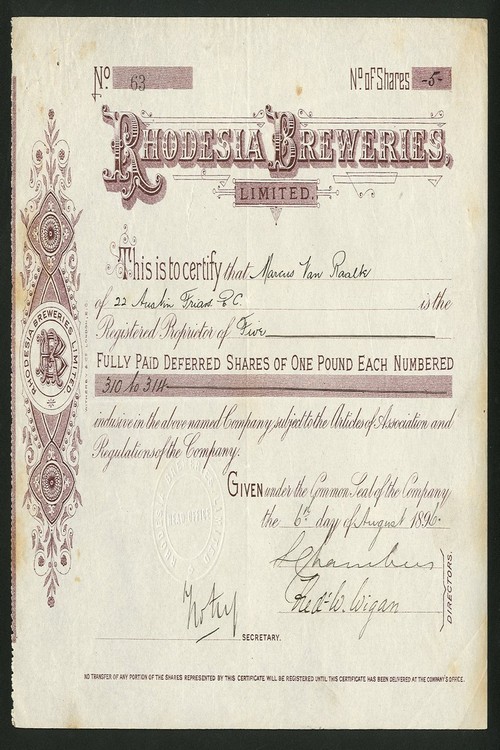 No. 63 No. of Shares -5-
RHODESIA BREWERIES,
LIMITED.
This is to certify that Marcus Van Raalte
of 22 Austin Friars E.C. is the
Registered Proprietor of Five
FULLY PAID DEFERRED SHARES OF ONE POUND EACH NUMBERED
310 to 314
inclusive in the above named Company subject to the Articles of Association and
Regulations of the Company.
GIVEN under the Common Seal of the Company
the 6th day of August 1896.
Chambers
Fredk W. Wigan
DIRECTORS.
SECRETARY.
NO TRANSFER OF ANY PORTION OF THE SHARES REPRESENTED BY THIS CERTIFICATE WILL BE REGISTERED UNTIL THIS CERTIFICATE HAS BEEN DELIVERED AT THE COMPANY'S OFFICE.
RHODESIA BREWERIES LIMITED
RB
RHODESIA BREWERIES LIMITED
HEAD OFFICE